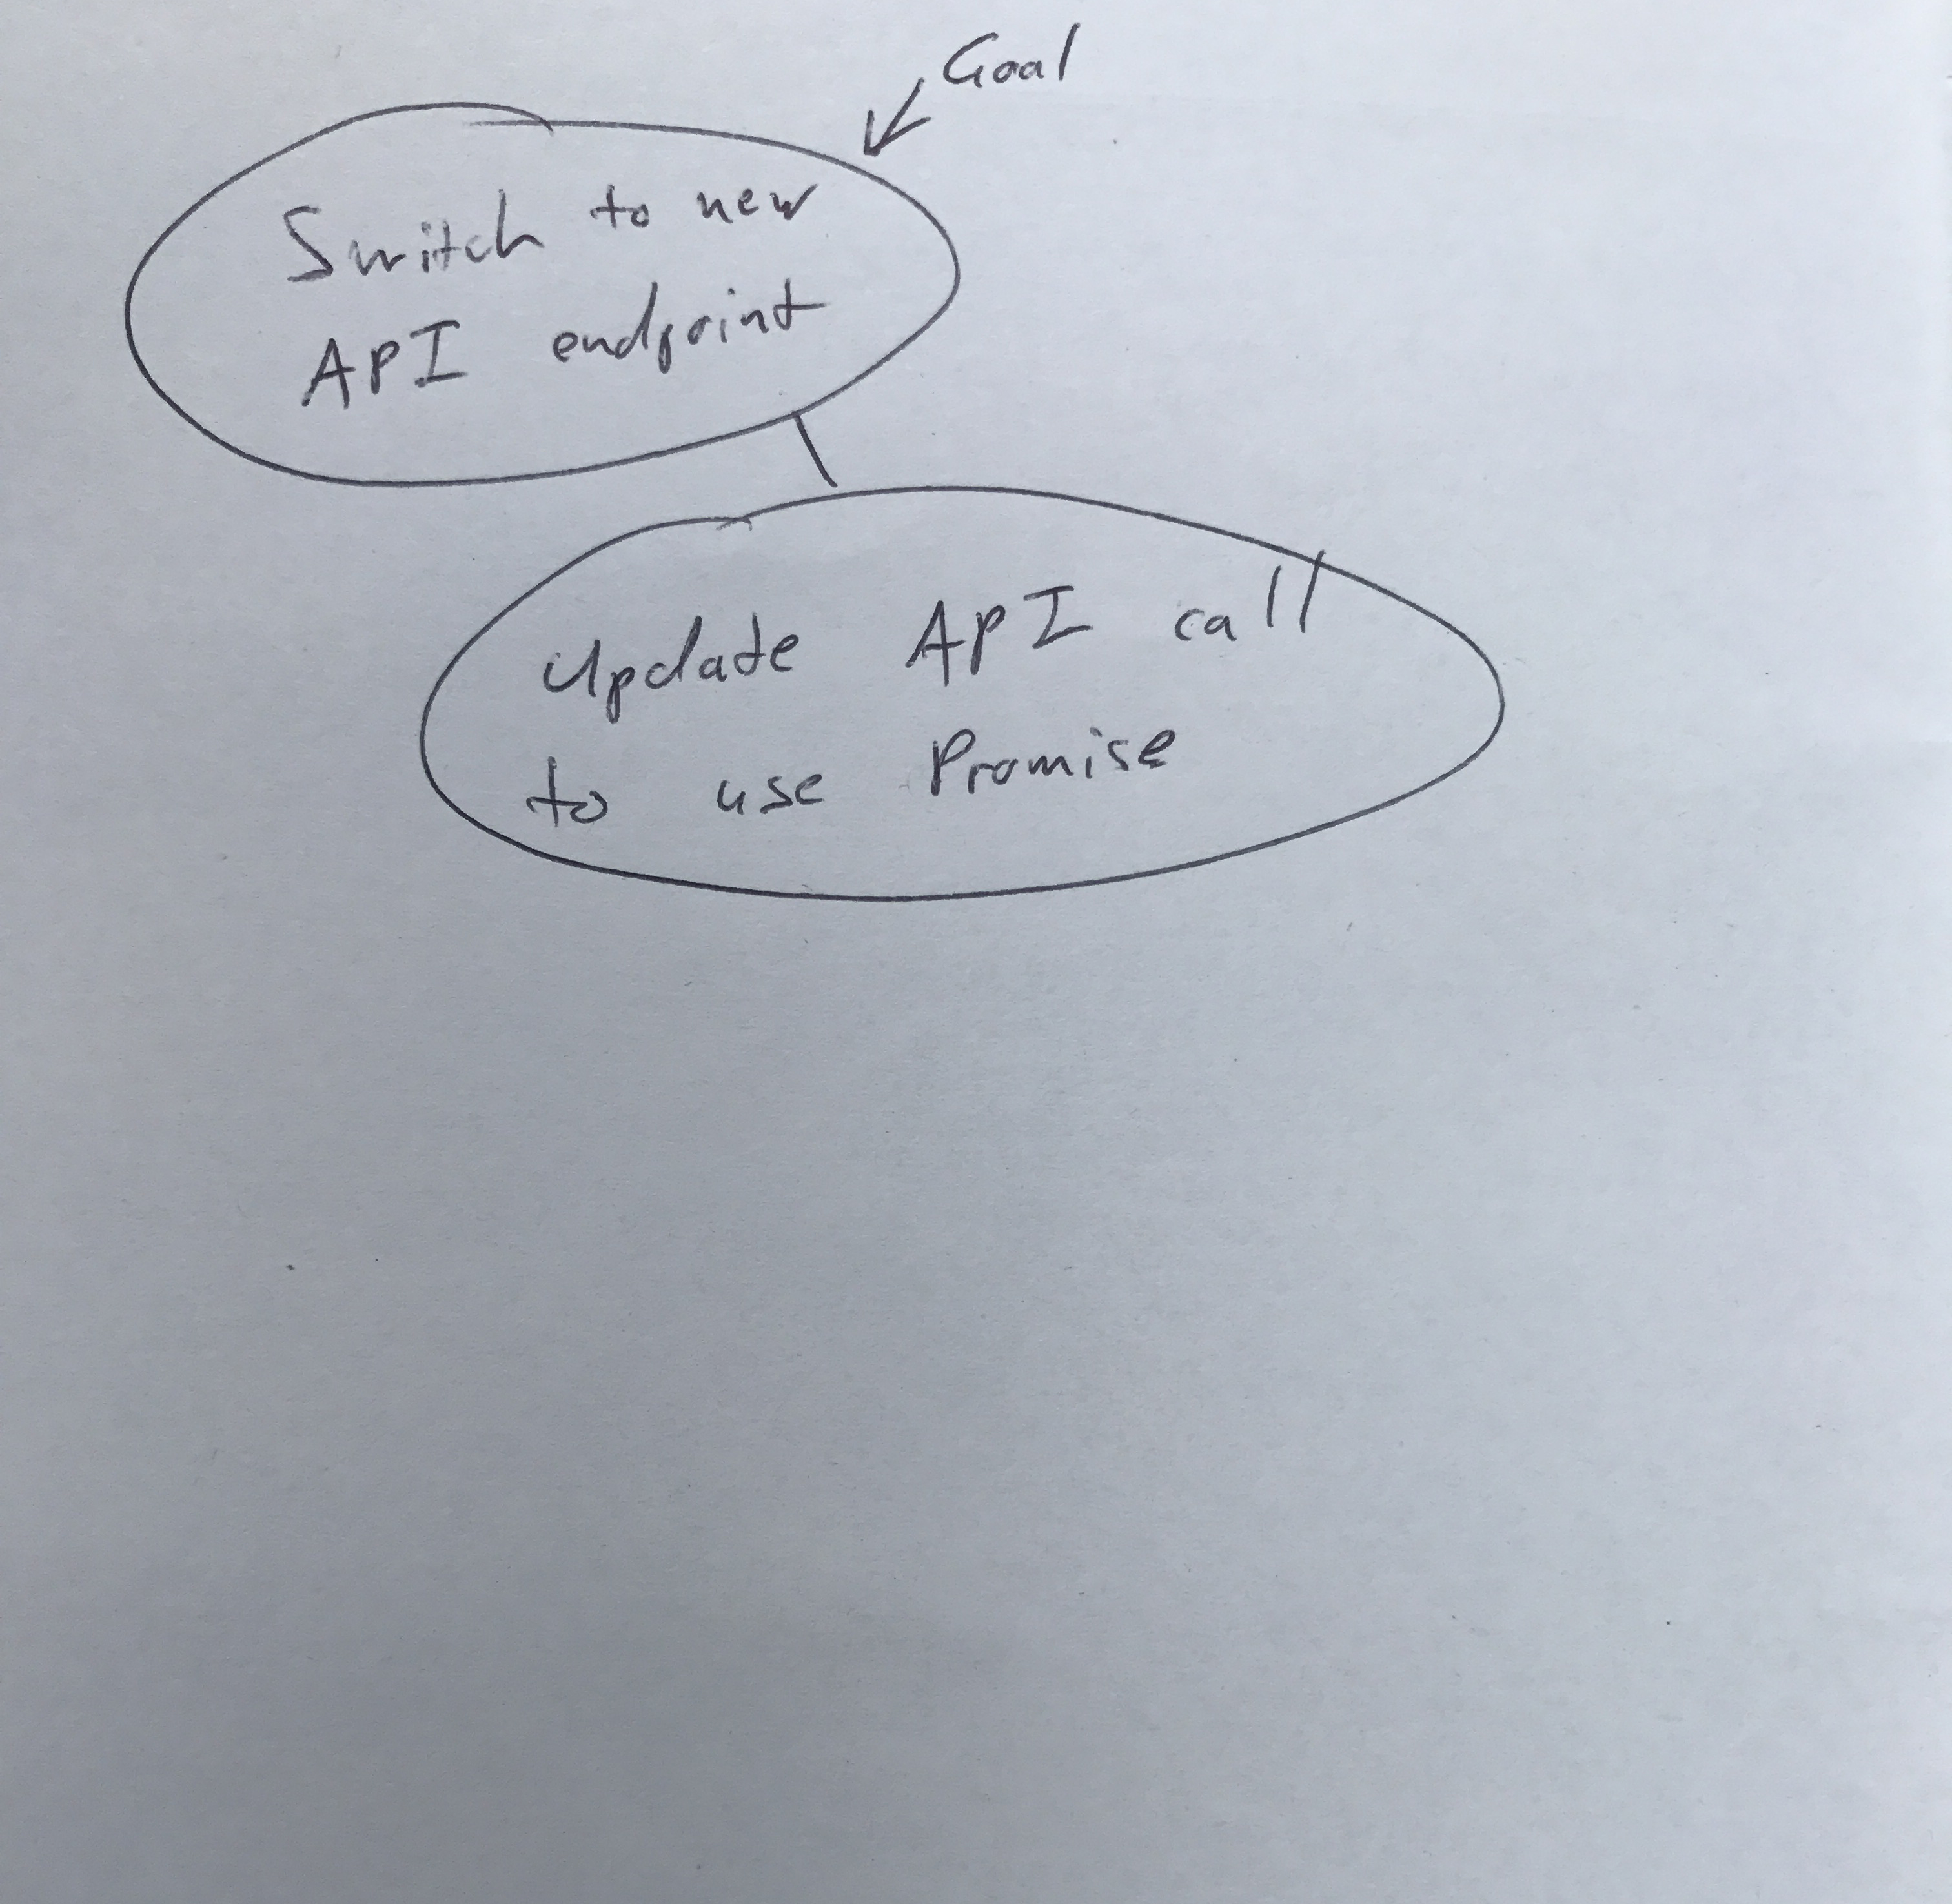 Goal
Switch to new
API endpoint
Update API call
to use Promise